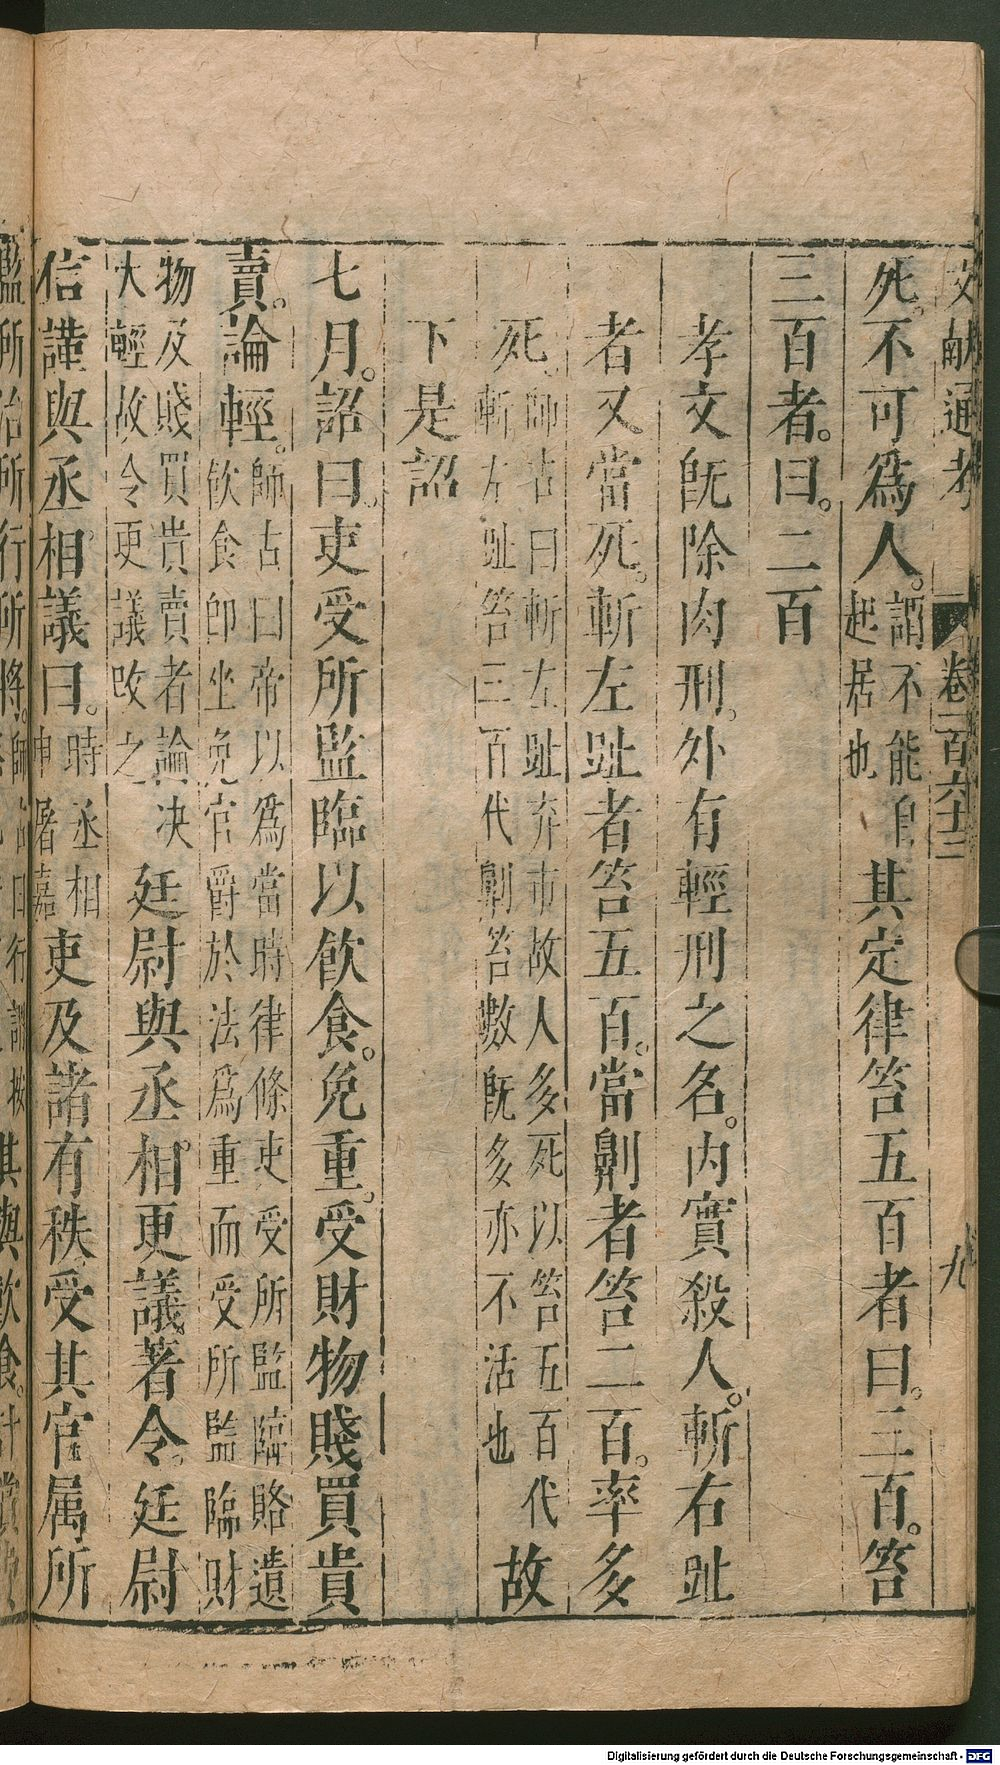 文獻通考 卷一百六十三 九
死。不可爲人。謂不能自起居也其定律笞五百者曰。三百。笞
三百者。曰。二百
孝文既除肉刑。外有輕刑之名。内實殺人。斬右趾
者又。當死。斬左趾者笞五百。當劓者笞二百。率多
死。師古曰斬右趾弃市故人多死以笞五百代斬左趾笞三百代劓笞數既多亦不活也故
下是詔
七月。詔曰。吏受所監臨以飲食。免重。受財物賤買貴
賣。論輕。師古曰帝以爲當時律條吏受所監臨賂遺飲食卽坐免官爵於法爲重而受所監臨財
物及賤買貴賣者論決大輕故令更議改之廷尉與丞相。更議。著令。廷尉
信謹與丞相。議曰。時丞相申屠嘉吏及諸有秩受其官属所
監所治所行所將。其與飲食。計償
Digitalisierung gefördert durch die Deutsche Forschungsgemeinschaft - DFG